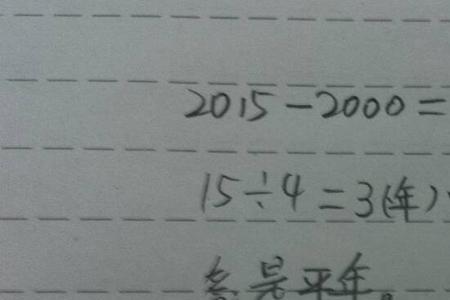 2015-2000=
15÷4=3(年)
是平年。